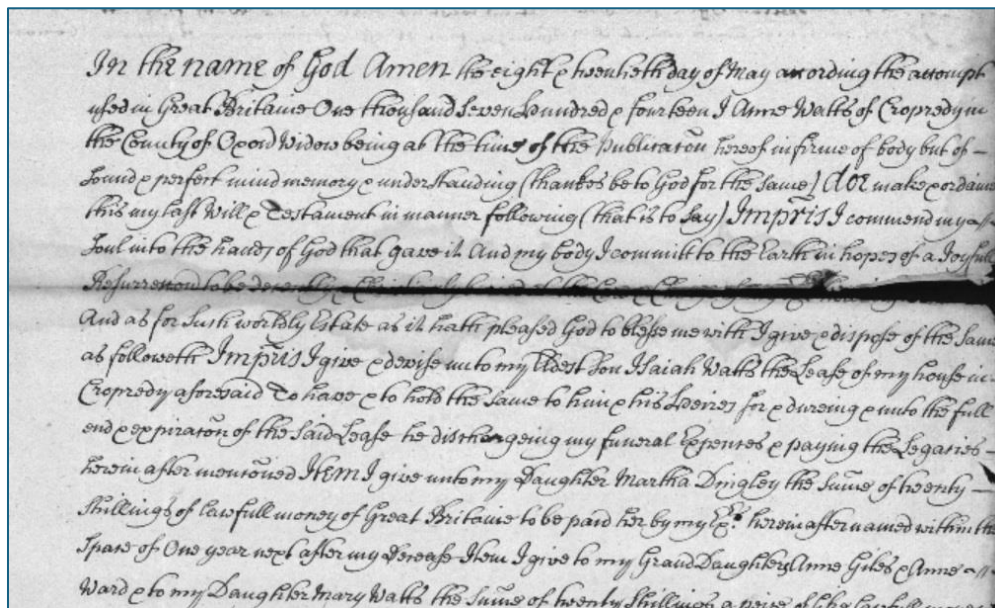 In the name of God Amen the eight & twentieth day of May according the accompt
used in Great Britaine One thousand seven hundred & fourteen I Anne Watts of Cropredy in
the County of Oxon Widow being at the time of the Publicaton hereof infirme of body but of –
sound & perfect mind memory & understanding (thankes be to God for the same) doe make & ordaine
this my last Will & Testament in manner following (that is to say) Impris I commend my
soul into the hands of God that gave it And my body I committ to the Earth in hopes of a Joyfull
Resurrection to be
And as for such worldly Estate as it hath pleased God to blesse me with I give & dispose of the same
as followeth Impris I give & devise unto my Eldest son Isaiah Watts the Lease of my house in
Cropredy aforesaid To have & to hold the same to him & his Heires for & dureing & unto the full
end & expiraton of the said Lease he dischargeing my funeral Expences & paying the Legacies –
herein after mentoned Item I give unto my Daughter Martha Dingley the sume of twenty –
shillings of lawfull money of Great Britaine to be paid her by my Exr. herein after named within the
space of One year next after my decease Item I give to my Grand Daughters Anne Giles & Anne
Ward & to my Daughter Mary Watts the sume of twenty shillings a peice of like lawfull